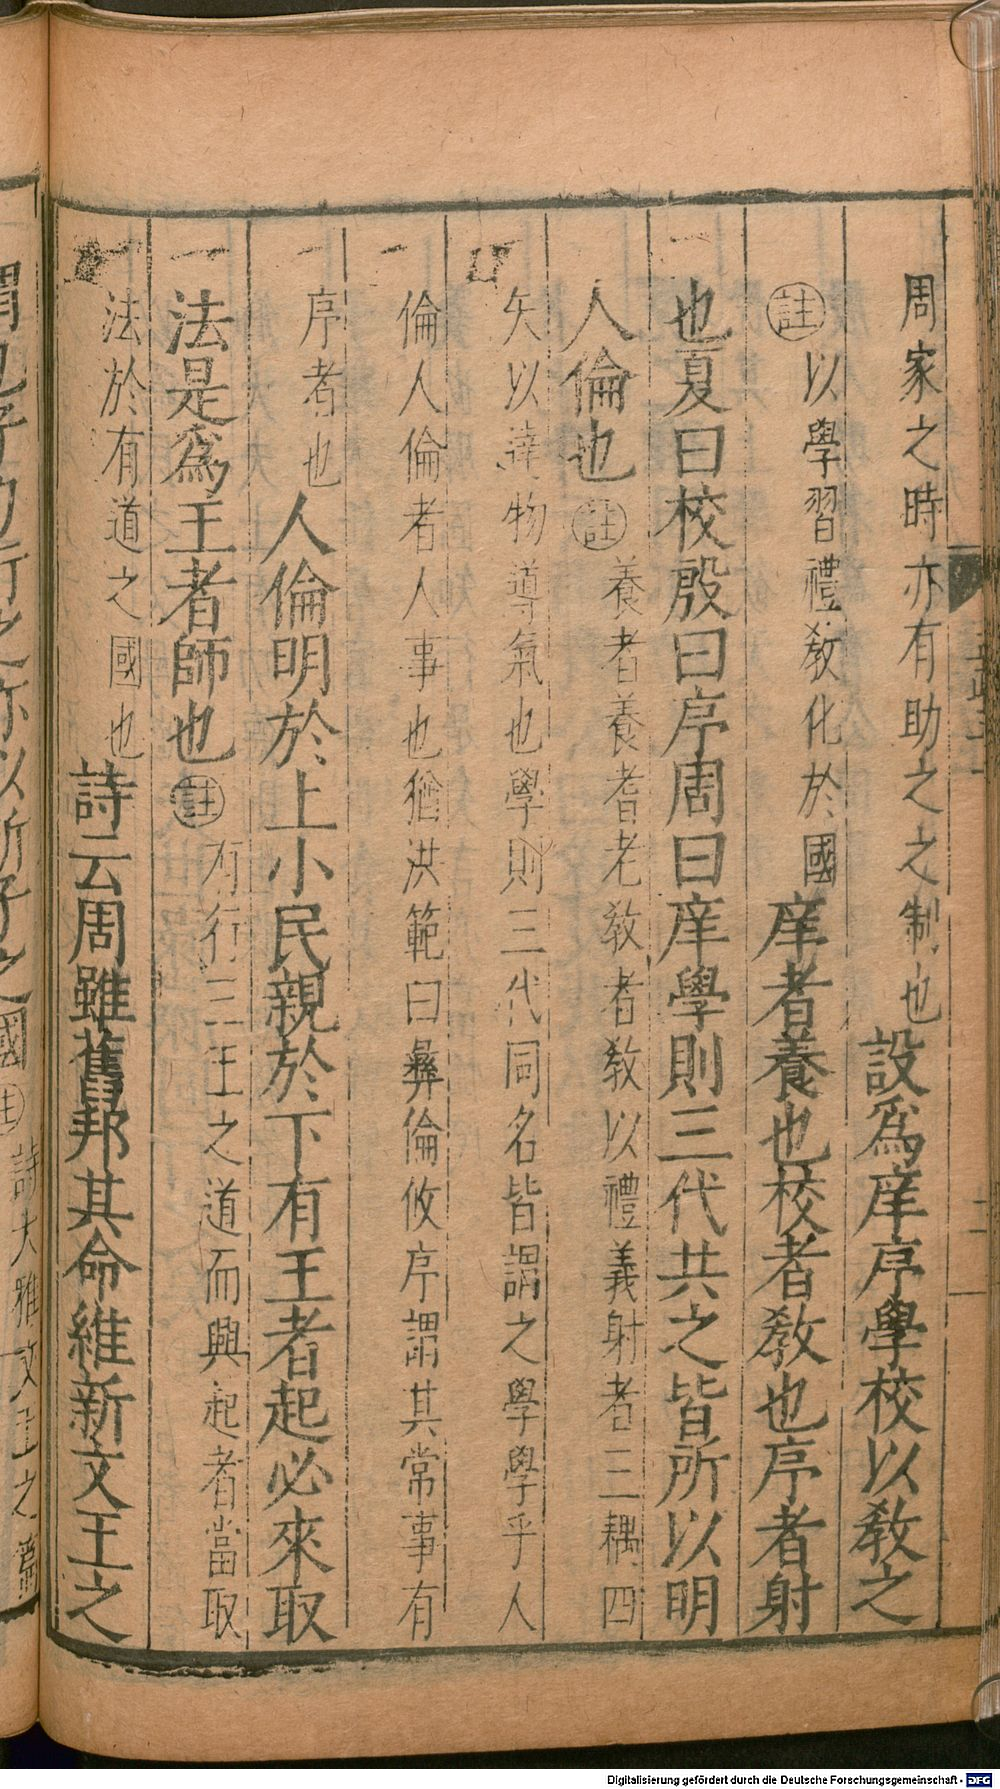 周家之時亦有助之之制也設爲庠序學校以敎之
註以學習禮敎化於國庠者養也校者敎也序者射
也夏曰校殷曰序周曰庠學則三代共之皆所以明
人倫也註養者養耆老敎者敎以禮義射者三耦四
矢以達物導氣也學則三代同名皆謂之學學乎人
倫人倫者人事也猶洪範曰彝倫攸序謂其常事有
序者也人倫明於上小民親於下有王者起必來取
法是爲王者師也註有行三王之道而興起者當取
法於有道之國也詩云周雖舊邦其命維新文王之
謂也子力行之亦以新子之國註詩大雅文王之篇
Digitalisierung gefördert durch die Deutsche Forschungsgemeinschaft - DFG